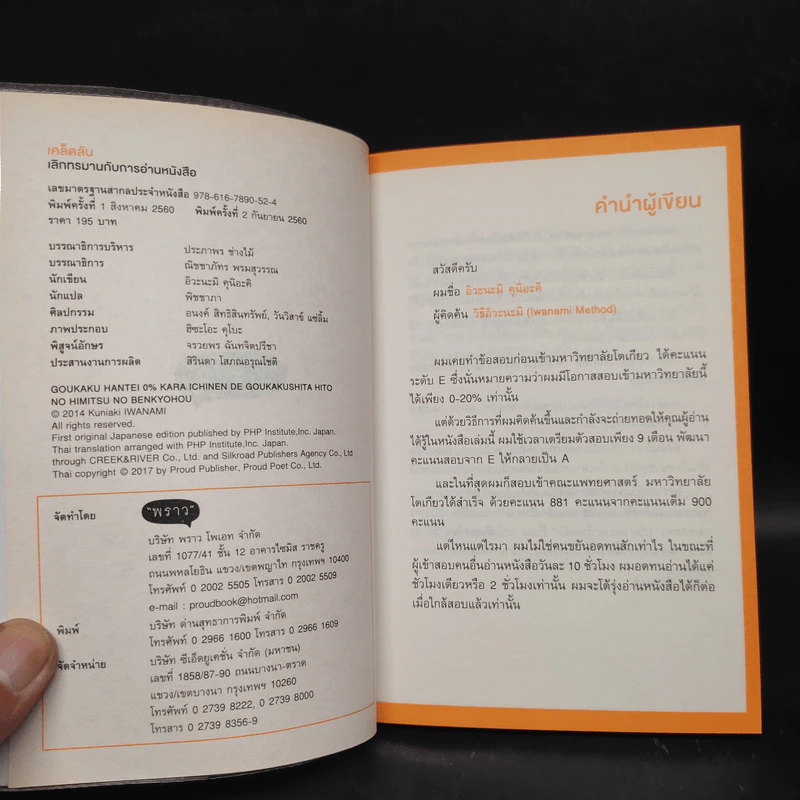 เคล็ดลับ
เลิกทรมานกับการอ่านหนังสือ
เลขมาตรฐานสากลประจำหนังสือ 978-616-7890-52-4
พิมพ์ครั้งที่ 1 สิงหาคม 2560 พิมพ์ครั้งที่ 2 กันยายน 2560
ราคา 195 บาท
บรรณาธิการบริหาร ประภาพร ช่างไม้
บรรณาธิการ ณิชชาภัทร พรมสุวรรณ
นักเขียน อิวะนะมิ คุนิอะคิ
นักแปล พิชชาภา
ศิลปกรรม อนงค์ สิทธิสินทรัพย์, วันวิสาข์ แซ่ลิ้ม
ภาพประกอบ ฮิซะโอะ คุโบะ
พิสูจน์อักษร จรวยพร ฉันทจิตปรีชา
ประสานงานการผลิต สิรินดา โสภณอรุณโชติ
GOUKAKU HANTEI 0% KARA ICHINEN DE GOUKAKUSHITA HITO
NO HIMITSU NO BENKYOHOU
© 2014 Kuniaki IWANAMI
All rights reserved.
First original Japanese edition published by PHP Institute,Inc. Japan.
Thai translation arranged with PHP Institute,Inc. Japan.
through CREEK&RIVER Co., Ltd. and Silkroad Publishers Agency Co., Ltd
Thai copyright © 2017 by Proud Publisher, Proud Poet Co., Ltd.
จัดทำโดย "พราว"
บริษัท พราว โพเอท จำกัด
เลขที่ 1077/41 ชั้น 12 อาคารไซมิส ราชครู
ถนนพหลโยธิน แขวง/เขตพญาไท กรุงเทพฯ 10400
โทรศัพท์ 0 2002 5505 โทรสาร 0 2002 5509
e-mail : proudbook@hotmail.com
พิมพ์ บริษัท ด่านสุทธาการพิมพ์ จำกัด
โทรศัพท์ 0 2966 1600 โทรสาร 0 2966 1609
จัดจำหน่าย บริษัท ซีเอ็ดยูเคชั่น จำกัด (มหาชน)
เลขที่ 1858/87-90 ถนนบางนา-ตราด
แขวง/เขตบางนา กรุงเทพฯ 10260
โทรศัพท์ 0 2739 8222, 0 2739 8000
โทรสาร 0 2739 8356-9
คำนำผู้เขียน
สวัสดีครับ
ผมชื่อ อิวะนะมิ คุนิอะคิ
ผู้คิดค้น วิธีอิวะนะมิ (Iwanami Method)
ผมเคยทำข้อสอบก่อนเข้ามหาวิทยาลัยโตเกียว ได้คะแนน
ระดับ E ซึ่งนั่นหมายความว่าผมมีโอกาสสอบเข้ามหาวิทยาลัยนี้
ได้เพียง 0-20% เท่านั้น
แต่ด้วยวิธีการที่ผมคิดค้นขึ้นและกำลังจะถ่ายทอดให้คุณผู้อ่าน
ได้รู้ในหนังสือเล่มนี้ ผมใช้เวลาเตรียมตัวสอบเพียง 9 เดือน พัฒนา
คะแนนสอบจาก E ให้กลายเป็น A
และในที่สุดผมก็สอบเข้าคณะแพทยศาสตร์ มหาวิทยาลัย
โตเกียวได้สำเร็จ ด้วยคะแนน 881 คะแนนจากคะแนนเต็ม 900
คะแนน
แต่ไหนแต่ไรมา ผมไม่ใช่คนขยันอดทนสักเท่าไร ในขณะที่
ผู้เข้าสอบคนอื่นอ่านหนังสือวันละ 10 ชั่วโมง ผมอดทนอ่านได้แค่
ชั่วโมงเดียวหรือ 2 ชั่วโมงเท่านั้น ผมจะโต้รุ่งอ่านหนังสือได้ก็ต่อ
เมื่อใกล้สอบแล้วเท่านั้น